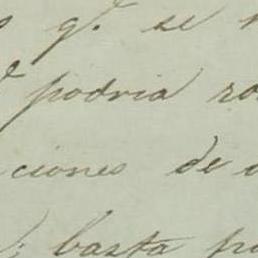 q.e se
podria
ciones de
; basta